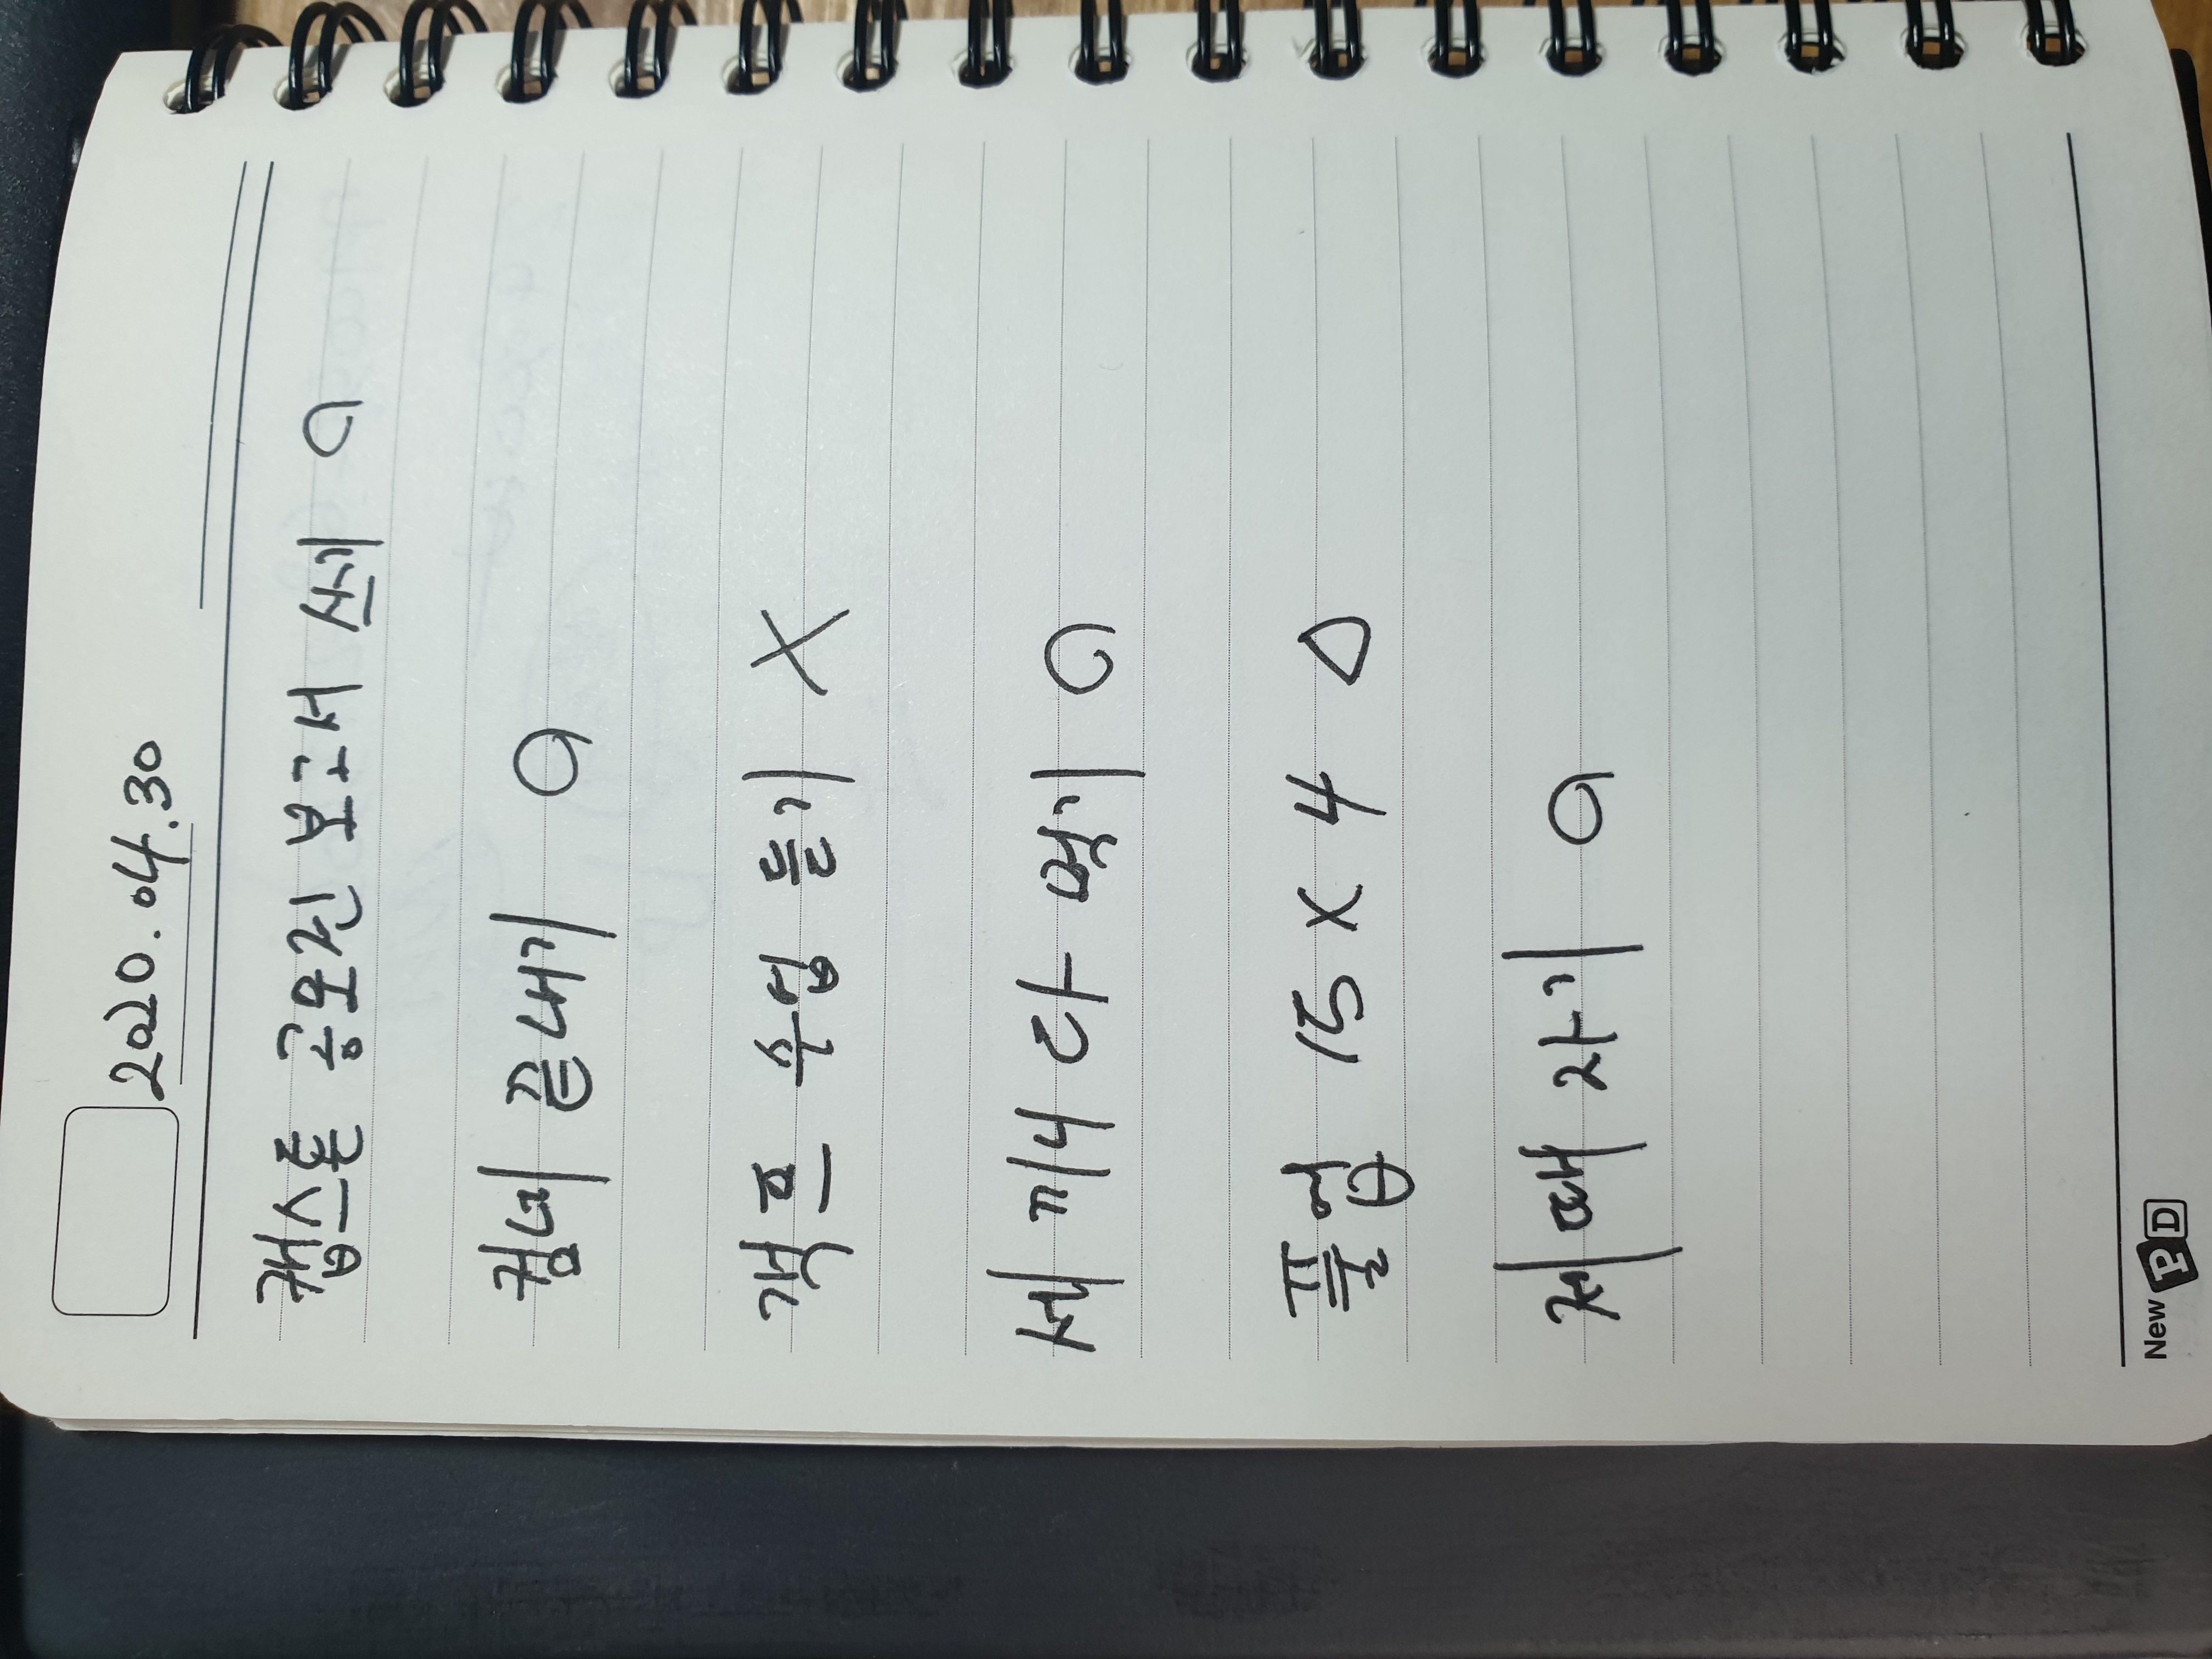 2020.04.30
캡스톤 공모전 보고서 쓰기 O
컴네 끝내기 O
객프 수업 듣기 X
세 끼니 다 먹기 O
풀업 15 X 4 △
제때 자기 O
New PD